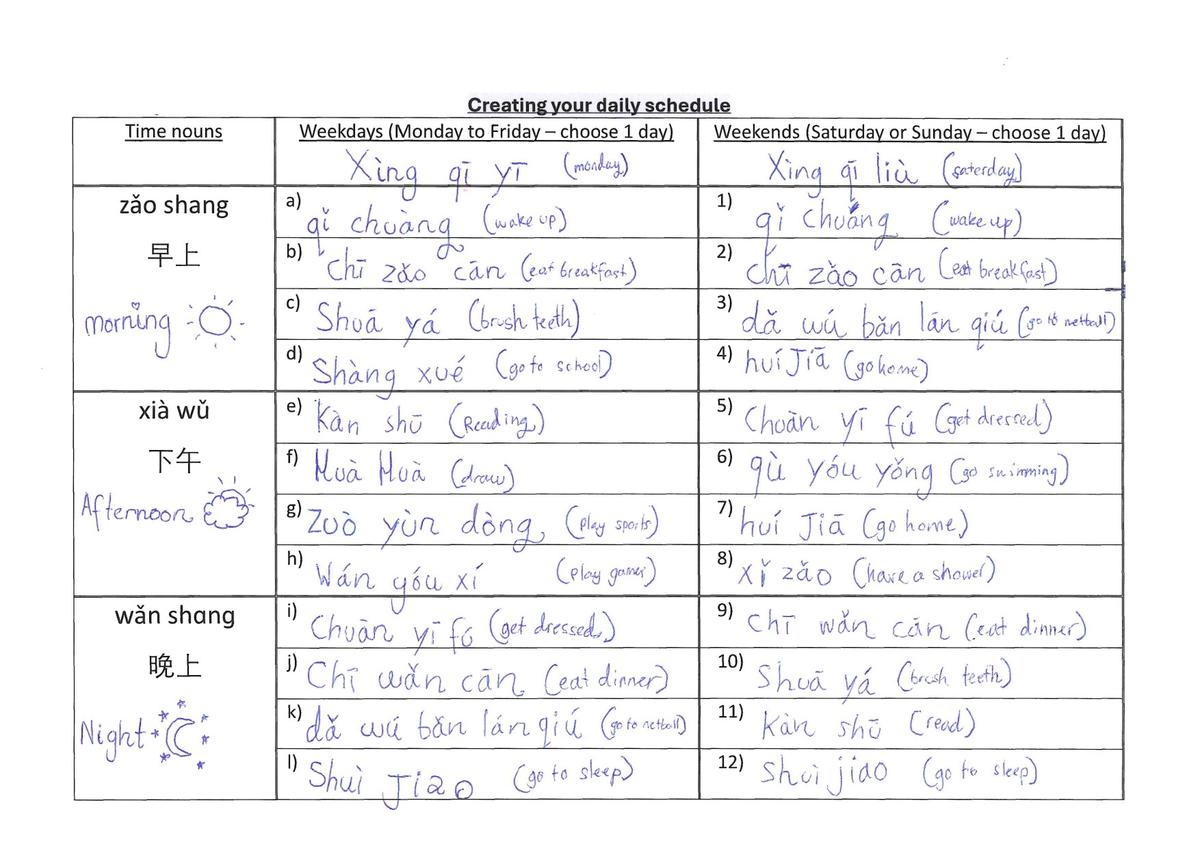 Creating your daily schedule
Time nouns
Weekdays (Monday to Friday – choose 1 day)
Xìng qī yī (monday)
Weekends (Saturday or Sunday – choose 1 day)
Xìng qī liù (saterday)
zǎo shang
早上
morning
a) qǐ chuàng (wake up)
1) qǐ chuǎng (wake up)
b) Chī zǎo cān (eat breakfast)
2) chī zǎo cān (eat breakfast)
c) Shuā yá (brush teeth)
3) dǎ wú bǎn lán qiú (go to netball)
d) Shàng xué (go to school)
4) huí Jiā (go home)
xià wǔ
下午
Afternoon
e) Kàn shū (Reading)
5) Chuàn yī fú (get dressed)
f) Huà Huà (draw)
6) qù yóu yǒng (go swimming)
g) Zuò yùn dòng (play sports)
7) huí Jiā (go home)
h) Wán yóu xí (play games)
8) xǐ zǎo (have a shower)
wǎn shang
晚上
Night
i) Chuān yī fú (get dressed)
9) Chī wǎn cān (eat dinner)
j) Chī wǎn cān (eat dinner)
10) Shuā yá (brush teeth)
k) dǎ wú bǎn lán qiú (go to netball)
11) Kàn shū (read)
l) Shuì Jiao (go to sleep)
12) Shuì jiao (go to sleep)